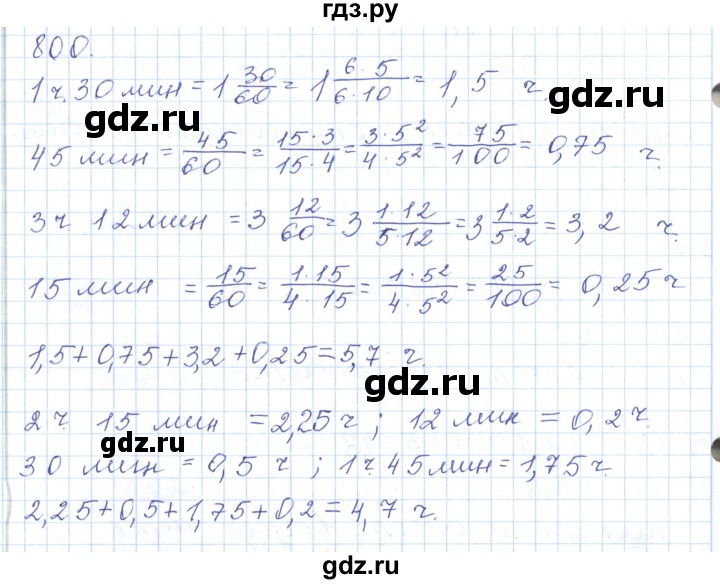 гдз.ру
800.
1 ч. 30 мин = 1 30/60 = 1 6·5/6·10 = 1,5 ч.
gdz.ru
gdz.ru
45 мин = 45/60 = 15·3/15·4 = 3·5²/4·5² = 75/100 = 0,75 ч.
3 ч 12 мин = 3 12/60 = 3 1·12/5·12 = 3 1·2/5·2 = 3,2 ч.
15 мин = 15/60 = 1·15/4·15 = 1·5²/4·5² = 25/100 = 0,25 ч
1,5+0,75+3,2+0,25=5,7 ч.
gdz.ru
2 ч. 15 мин = 2,25 ч ; 12 мин = 0,2 ч.
gdz.ru
30 мин = 0,5 ч ; 1 ч. 45 мин = 1,75 ч.
2,25+0,5+1,75+0,2=4,7 ч.
gdz.ru